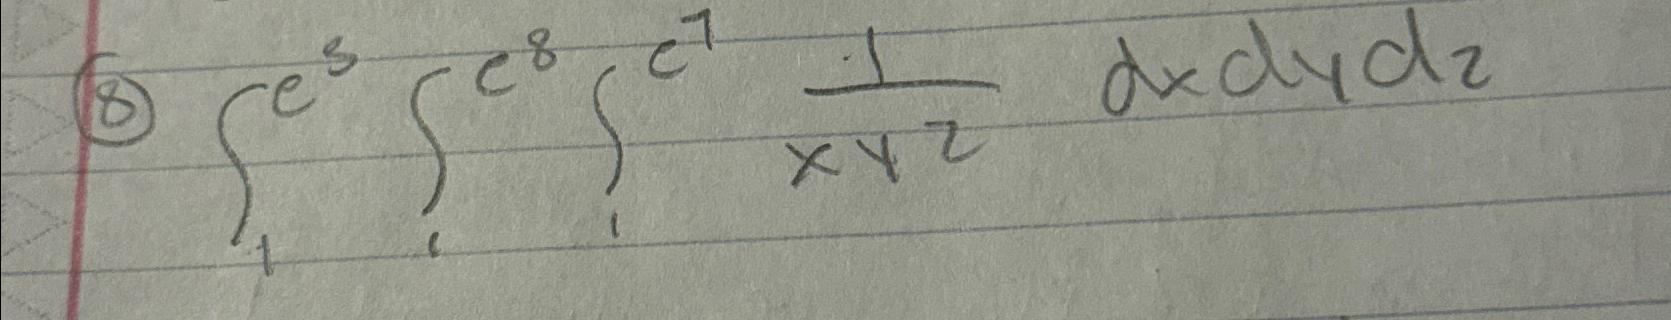 ⑧ ∫₁^{e³} ∫₁^{e⁸} ∫₁^{e⁷} 1/(xyz) dxdydz